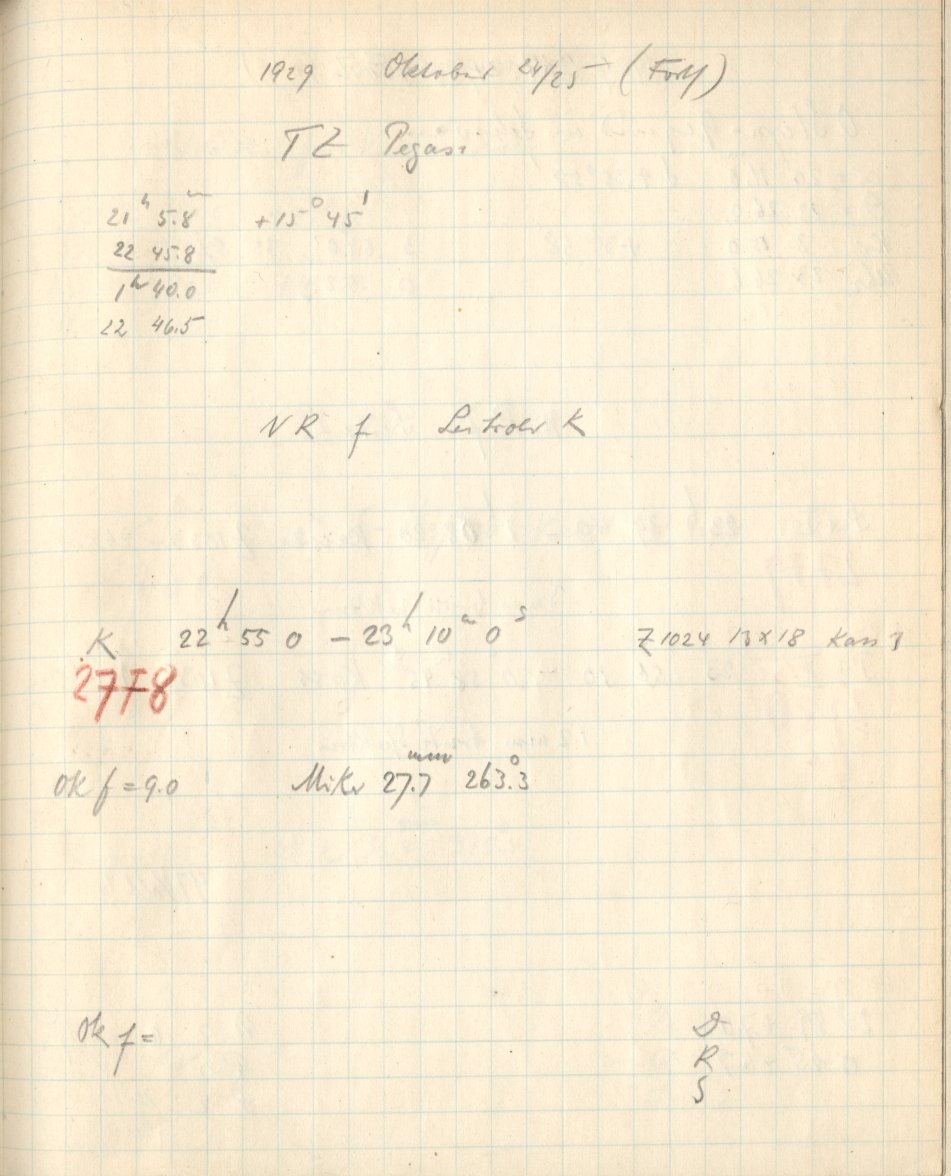 1929 Oktober 24/25 (Forts)
TZ Pegasi
21ʰ 5.8ᵐ +15° 45'
22 45.8
1ʰ 40.0
22 46.5
NR f Leitrohr K
K 22ʰ 55 0 – 23ʰ 10ᵐ 0ˢ Z 1024 13x18 Kass 3
2778
Ok f = 9.0 Mikr 27.7ᵐᵐ 263.°3
Ok f =
D
R
S